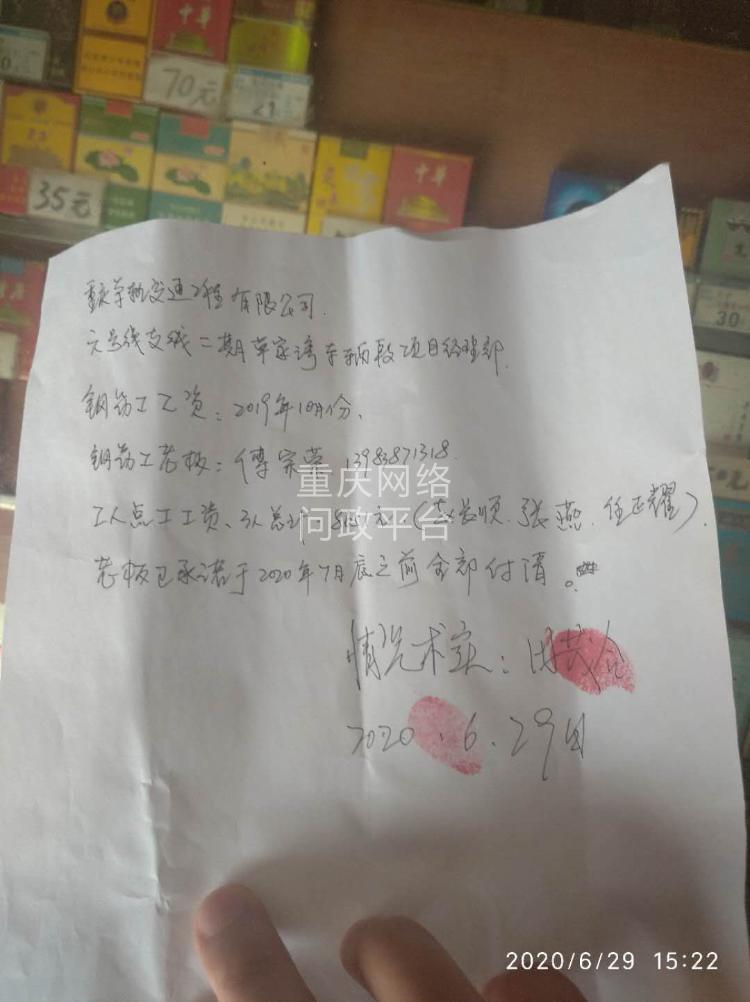 中华
70元
21
35元
中华
30
重庆单轨交通工程有限公司.
六号线支线二期草家湾车辆段项目经理部.
钢筋工工资: 2019年10月份.
钢筋工老板: 傅宗荣 13983871318.
工人点工工资、3人总计 元 (长顺. 张燕. 任正耀).
老板已承诺于2020年7月底之前全部付清。
情况术实:
2020.6.29日
重庆网络
问政平台
2020/6/29 15:22